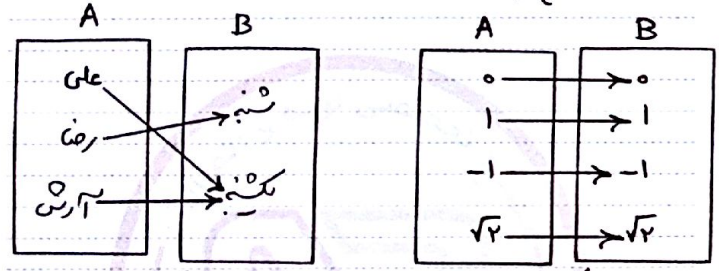 A
B
علی
رضا
آرش
شنبه
یکشنبه
A
B
۰
۱
-۱
√۲
۰
۱
-۱
√۲